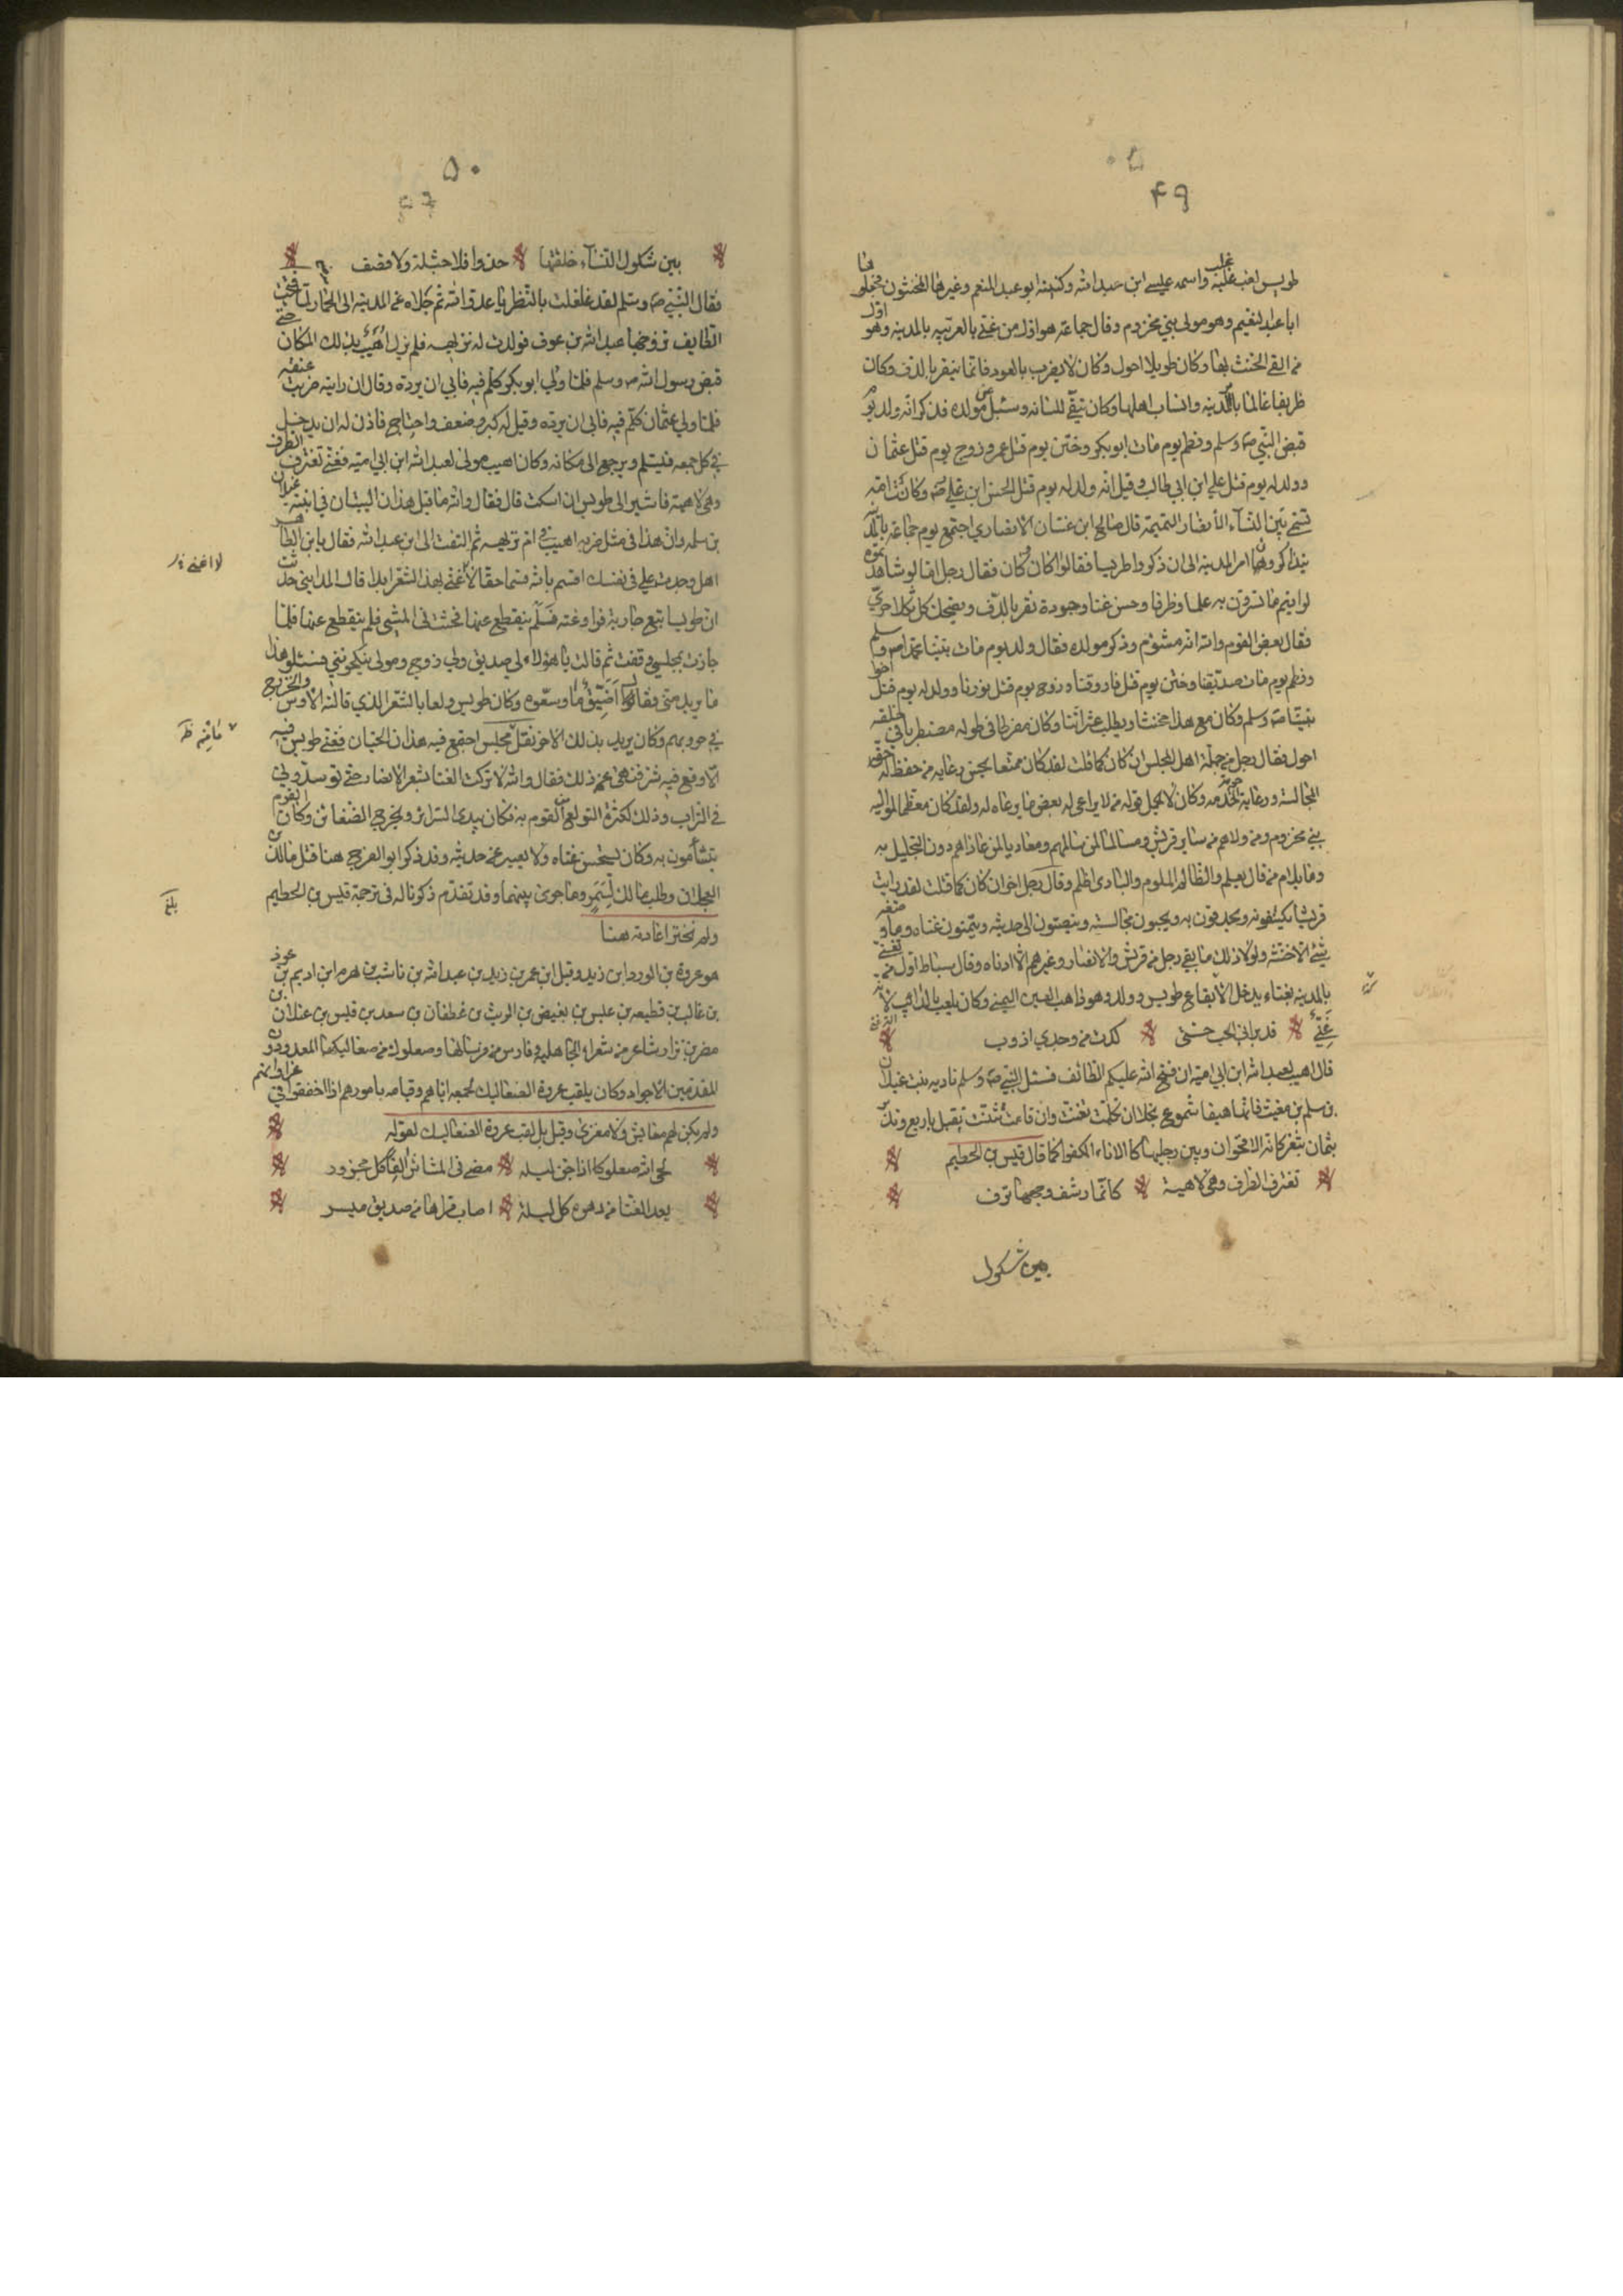 ٤٩
طويس لقب غلب عليه واسمه عيسى ابن عبد الله وكنيته ابو عبد المنعم وغيرها المخنثون فجعلوها
ابا عبد النعيم وهو مولى بني مخزوم وقال جماعة هو اول من غنى بالعربيه بالمدينه وهو اول
من القى الخنث بها وكان طويلا احول وكان لا يضرب بالعود فانما ينقر بالدف وكان
ظريفا عالما بالمدينه وانساب اهلها وكان يتقى للسانه وسئل عن مولده فذكر انه ولد يوم
قبض النبي صـ وسلم وفطم يوم مات ابو بكر وختن يوم قتل عمر وزوج يوم قتل عثمان
وولد له يوم قتل علي ابن ابي طالب وقيل انه ولد له يوم قتل الحسن ابن علي صـ وكانت امه
تمشي بين النسآء الانصار بالنميمة قال صالح ابن غسان الانصاري اجتمع يوم جماعة بالمدينه
يتذاكرون امر المدينه الى ان ذكروا طويسا فقالوا كان وكان فقال رجل اما لو شاهدتموه
لرايتم ما تسرون به علما وظرفا وحسن غنا وجودة نقر بالدف ويضحك كل ثكلا حرى
فقال بعض القوم والله انه مشئوم وذكر مولده فقال ولد يوم مات نبينا محمد صـ وسلم
وفطم يوم مات صديقنا وختن يوم قتل فاروقنا وزوج يوم قتل نورنا وولد له يوم قتل اخوا
نبينا صـ وسلم وكان مع هذا مخنثا ويطلب عثراتنا وكان مفرطا في طوله مضطربا في خلقه
احول فقال رجل من جملة اهل المجلس ان كان كما قلت لقد كان ممتعا يحسن رعايه من حفظ له حق
المجالسة ورعاية حرمة الخدمه وكان لا يحمل قوله من لا يراعي له بعض ما يرعاه له ولقد كان معظما لمواليه
بني مخزوم ومن والاهم من ساير قريش ومسالما لمن سالمهم ومعاديا لمن عاداهم دون التحليل به
وما يلام من قال بعلم والظالم الملوم والبادى اظلم وقال رجل اخر ان كان كما قلت لقد رايت
قريشا يكتنفونه ويحدقون به ويحبون مجالسته وينصتون الى حديثه ويتمنون غناه وما وضعه
شيء الا خنثه ولولا ذلك ما بقي رجل من قريش والانصار وغيرهم الا ادناه وقال سياط اول من تغنى
بالمدينه بغناء يدخل الايقاع طويس وولد وهو ذاهب العين اليمنى وكان يلقب بالذائب لانه
غنى قد براني الحب حتى كدت من وجدي اذوب
قال اهيب لعبد الله ابن ابي اميه ان فتح الله عليكم الطائف فسئل النبي صـ وسلم ناديه بنت غيلان
بن سلم بن مغيث فانها هيفا شموع نجلا ان تكلمت تغنت وان قامت تثنت تقبل باربع وتدبر
بثمان بثغر كانه الاقحوان وبين رجليها كالاناء المكفوا كما قال قيس بن الخطيم
تغترق الطرف وهي لاهية كانما شف وجهها نزف
بين شكول
٥٠
بين شكول النسآء خلقتها حذوا فلا جبلة ولا قضف
فقال النبي صـ وسلم لقد غلغلت بالنظر يا عدو الله ثم جلاه عن المدينه الى الحما ولما فتحت
الطايف تزوجها عبد الله بن عوف فولدت له بريهه فلم يزل اهيب بذلك المكان حتى
قبض رسول الله صـ وسلم فلما ولي ابو بكر كلم فيه فابى ان يرده وقال ان رايته ضربت عنقه
فلما ولي عثمان كلم فيه فابى ان يرده وقيل له كبر وضعف واحتاج فاذن له ان يدخل
في كل جمعه فيسئلم ويرجع الى مكانه وكان اهيب مولى لعبد الله ابن ابي اميه فغنى تغترق الطرف
وهي لاهية فاشير الى طويس ان اسكت قال فقال والله ما قيل هذان البيتان في ابنة غيلان
بن سلمه وان هذا في مثل ضربه اهيب في ام بريهه ثم التفت الى ابن عبد الله فقال يابن الطاهر
اهل وجدت علي في نفسك اقسم بالله قسما حقا لا اغنى بهذا الشعر ابدا قال المدايني حدثت
لا اغنى
ان طويسا تبع جارية فراوغته فلم ينقطع عنها فحثت في المشي فلم ينقطع عنها فلما
جازت بمجلس وقفت ثم قالت يا هؤلاء لي صديق ولي زوج ومولى ينكحونني فسئلوا هذا
ما يريد مني فقال اضيق ما وسعوه وكان طويس ولعا بالشعر الذي قالته الاوس والخزرج
في حروبهم وكان يريد بذلك الاغرا فقل مجلس اجتمع فيه هذان الحيان فغنى طويس فيه
الا وقع فيه شر فنهي عن ذلك فقال والله لا تركت الغنا بشعر الانصار حتى توسدوني
في التراب وذلك لكثرة التولع القوم به فكان يبدى السرائر ويخرج الضغائن وكان القوم
يتشأمون به وكان يستحسن غناه ولا يصبر عن حديثه وقد ذكر ابو الفرج هنا قتل مالك بن
العجلان وطلب مالك لسمير وما جرى بينهما وقد تقدم ذكرنا له في ترجمة قيس بن الخطيم
بلغ
ولم نختر اعادته هنا
هو عروة بن الورد ابن زيد وقيل ابن عمرو بن زيد بن عبد الله بن ناشب بن هرم ابن اديم بن عوذ
بن غالب بن قطيعه بن عبس بن بغيض بن الريث بن غطفان بن سعد بن قيس بن عيلان بن
مضر بن نزار شاعر من شعراء الجاهليه وفارس من فرسانها وصعلوك من صعاليكها المعدودون
المقدمين الاجواد وكان يلقب عروة الصعاليك لجمعه اياهم وقيامه بامورهم اذا اخفقوا في غزواتهم
ولم يكن لهم معاش ولا مغزى وقيل بل لقب عروة الصعاليك لقوله
لحى الله صعلوكا اذا جن ليله مضى في المشاش الفا كل مجزور
يعد الغنا من دهره كل ليلة اصاب قراها من صديق ميسر